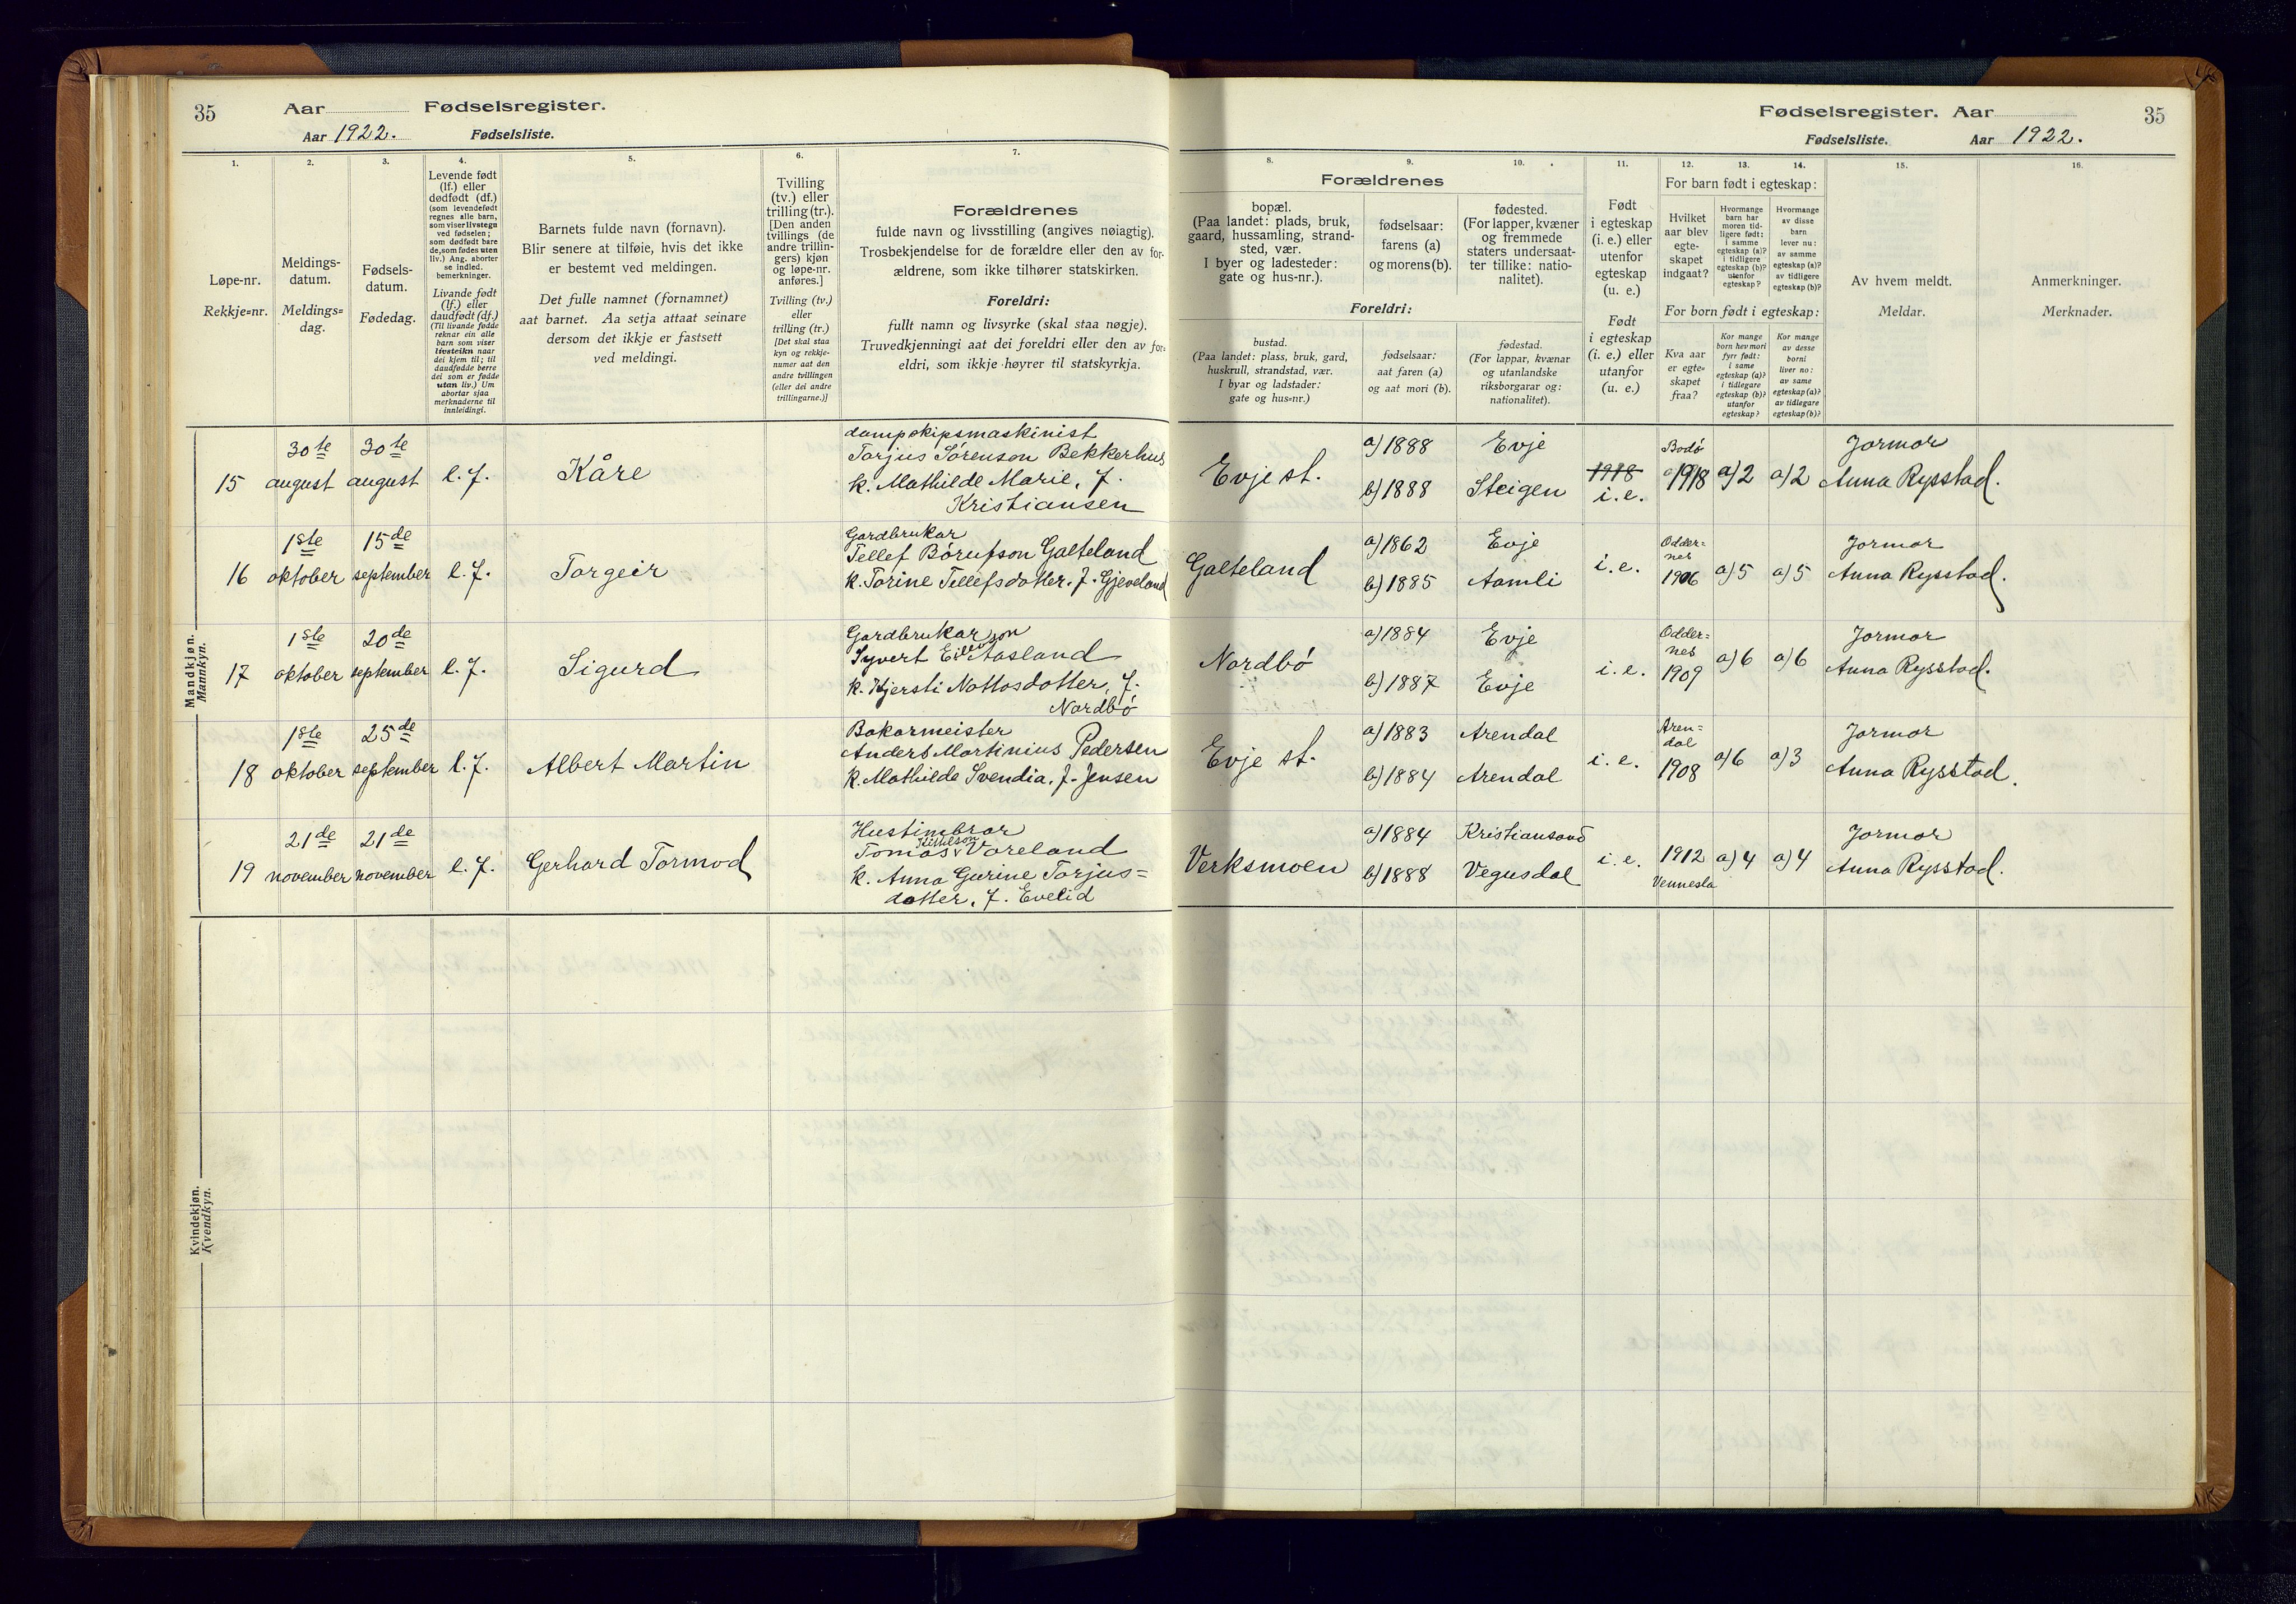 35 Aar Fødselsregister.
Aar 1922. Fødselsliste.
Fødselsregister. Aar 35
Fødselsliste. Aar 1922.
1. 2. 3. 4. 5. 6. 7.
Løpe-nr.
Rekkje=nr.
Meldings-
datum.
Meldings=
dag.
Fødsels-
datum.
Fødedag.
Levende født
(lf.) eller
dødfødt (df.)
(som levendefødt
regnes alle barn,
som viser livstegn
ved fødselen;
som dødfødt bare
de, som fødes uten
liv.) Ang. aborter
se indled.
bemerkninger.
Livande født
(lf.) eller
daudfødt (df.)
(Til livande fødde
reknar ein alle
barn som viser
livsteikn naar
dei kjem til; til
daudfødde berre
dei som er fødde
utan liv.) Um
abortar sjaa
merknaderne til
innleidingi.
Barnets fulde navn (fornavn).
Blir senere at tilføie, hvis det ikke
er bestemt ved meldingen.
Det fulle namnet (fornamnet)
aat barnet. Aa setja attaat seinare
dersom det ikkje er fastsett
ved meldingi.
Tvilling
(tv.) eller
trilling (tr.).
[Den anden
tvillings (de
andre trillin-
gers) kjøn
og løpe-nr.
anføres.]
Tvilling (tv.)
eller
trilling (tr.)
[Det skal staa
kyn og rekkje-
numer aat den
andre tvillingen
(eller dei andre
trillingarne.)]
Forældrenes
fulde navn og livsstilling (angives nøiagtig).
Trosbekjendelse for de forældre eller den av for-
ældrene, som ikke tilhører statskirken.
Foreldri:
fullt namn og livsyrke (skal staa nøgje).
Truvedkjenningi aat dei foreldri eller den av for=
eldri, som ikkje høyrer til statskyrkja.
8. 9. 10. 11. 12. 13. 14. 15. 16.
Forældrenes
bopæl.
(Paa landet: plads, bruk,
gaard, hussamling, strand-
sted, vær.
I byer og ladesteder:
gate og hus-nr.).
fødselsaar:
farens (a)
og morens (b).
fødested.
(For lapper, kvæner
og fremmede
staters undersaat-
ter tillike: natio-
nalitet).
Foreldri:
bustad.
(Paa landet: plass, bruk, gard,
huskrull, strandstad, vær.
I byar og ladstader:
gate og hus=nr.)
fødselsaar:
aat faren (a)
og aat mori (b).
fødestad.
(For lappar, kvænar
og utanlandske
riksborgarar og:
nationalitet).
Født
i egteskap
(i. e.) eller
utenfor
egteskap
(u. e.)
Født
i egteskap
(i. e.) eller
utanfor
(u. e.)
For barn født i egteskap:
Hvilket
aar blev
egte-
skapet
indgaat?
Hvormange
barn har
moren tid-
ligere født:
i samme
egteskap (a)?
i tidligere
egteskap (b)?
utenfor
egteskap?
Hvormange
av disse
barn
lever nu:
av samme
egteskap (a)?
av tidligere
egteskap (b)?
For born født i egteskap:
Kva aar
er egte=
skapet
fraa?
Kor mange
born hev mori
fyrr født:
i same
egteskap (a)?
i tidlegare
egteskap (b)?
utanfor
egteskap?
Kor mange
av desse
borni
liver no:
av same
egteskap (a)?
av tidlegare
egteskap (b)?
Av hvem meldt.
Meldar.
Anmerkninger.
Merknader.
Mandkjøn.
Mannkyn.
15 30te august 30te august l. f. Kåre
dampskipsmaskinist
Torjus Sørenson Bekkerhus
k. Mathilde Marie, f.
Kristiansen
Evje st. a) 1888 Evje
b) 1888 Steigen
1918
i. e. Bodö 1918 a) 2 a) 2 Jormor
Anna Rysstad.
16 1ste oktober 15de september l. f. Torgeir
Gardbrukar
Tellef Börufson Galteland
k. Torine Tellefsdotter. f. Gjeveland
Galteland a) 1862 Evje
b) 1885 Aamli
i. e. Odder=
nes
1906 a) 5 a) 5 Jormor
Anna Rysstad.
17 1ste oktober 20de september l. f. Sigurd
Gardbrukar
Syvert Eilevson Aasland
k. Kjersti Nottosdotter, f.
Nordbö
Nordbö a) 1884 Evje
b) 1887 Evje
i. e. Odder=
nes
1909 a) 6 a) 6 Jormor
Anna Rysstad.
18 1ste oktober 25de september l. f. Albert Martin
Bakarmeister
Anders Martinius Pedersen
k. Mathilde Svendia, f. Jensen
Evje st. a) 1883 Arendal
b) 1884 Arendal
i. e. Aren=
dal
1908 a) 6 a) 3 Jormor
Anna Rysstad.
19 21de november 21de november l. f. Gerhard Tormod
Hustimbrar
Tomas Kittelson Voreland
k. Anna Gurine Torjus=
dotter, f. Evelid
Verksmoen a) 1884 Kristiansand
b) 1888 Vegusdal
i. e. 1912
Vennesla a) 4 a) 4 Jormor
Anna Rysstad.
Kvindekjøn.
Kvendkyn.